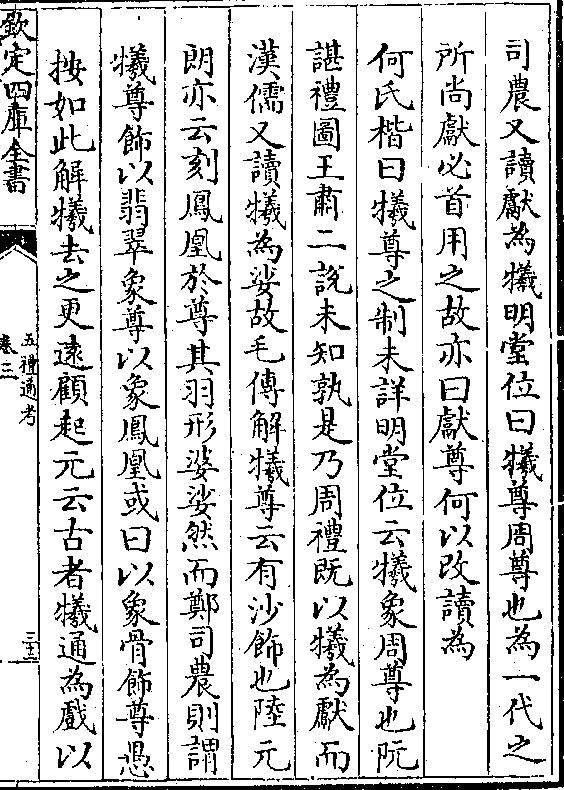 司農又讀獻為犧明堂位曰犧尊周尊也為一代之
所尚獻必首用之故亦曰獻尊何以改讀為
何氏楷曰犧尊之制未詳明堂位云犧象周尊也阮
諶禮圖王肅二說未知孰是乃周禮既以犧為獻而
漢儒又讀犧為娑故毛傳解犧尊云有沙飾也陸元
朗亦云刻鳳凰於尊其羽形婆娑然而鄭司農則謂
犧尊飾以翡翠象尊以象鳳凰或曰以象骨飾尊愚
按如此解犧去之更遠顧起元云古者犧通為戲以
欽定四庫全書
五禮通考
卷三
三十三